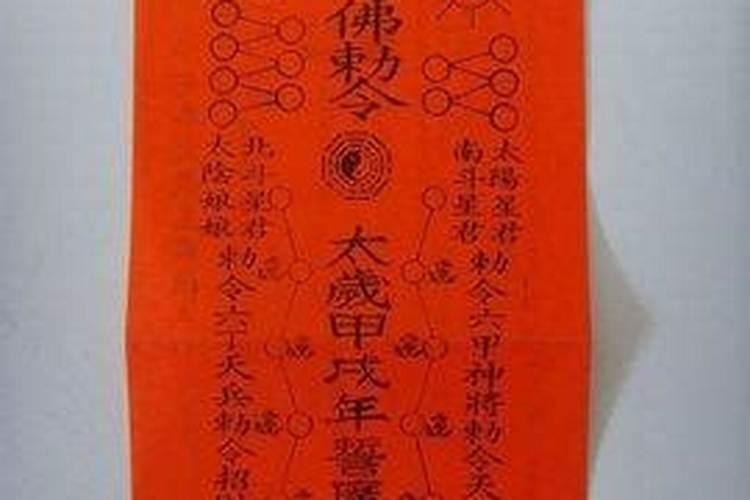 太陽星君
南斗星君
勅令六甲神將勅令天
佛勅令
太歲甲戌年誓廣
北斗星君
太陰娘娘
勅令六丁天兵勅令招